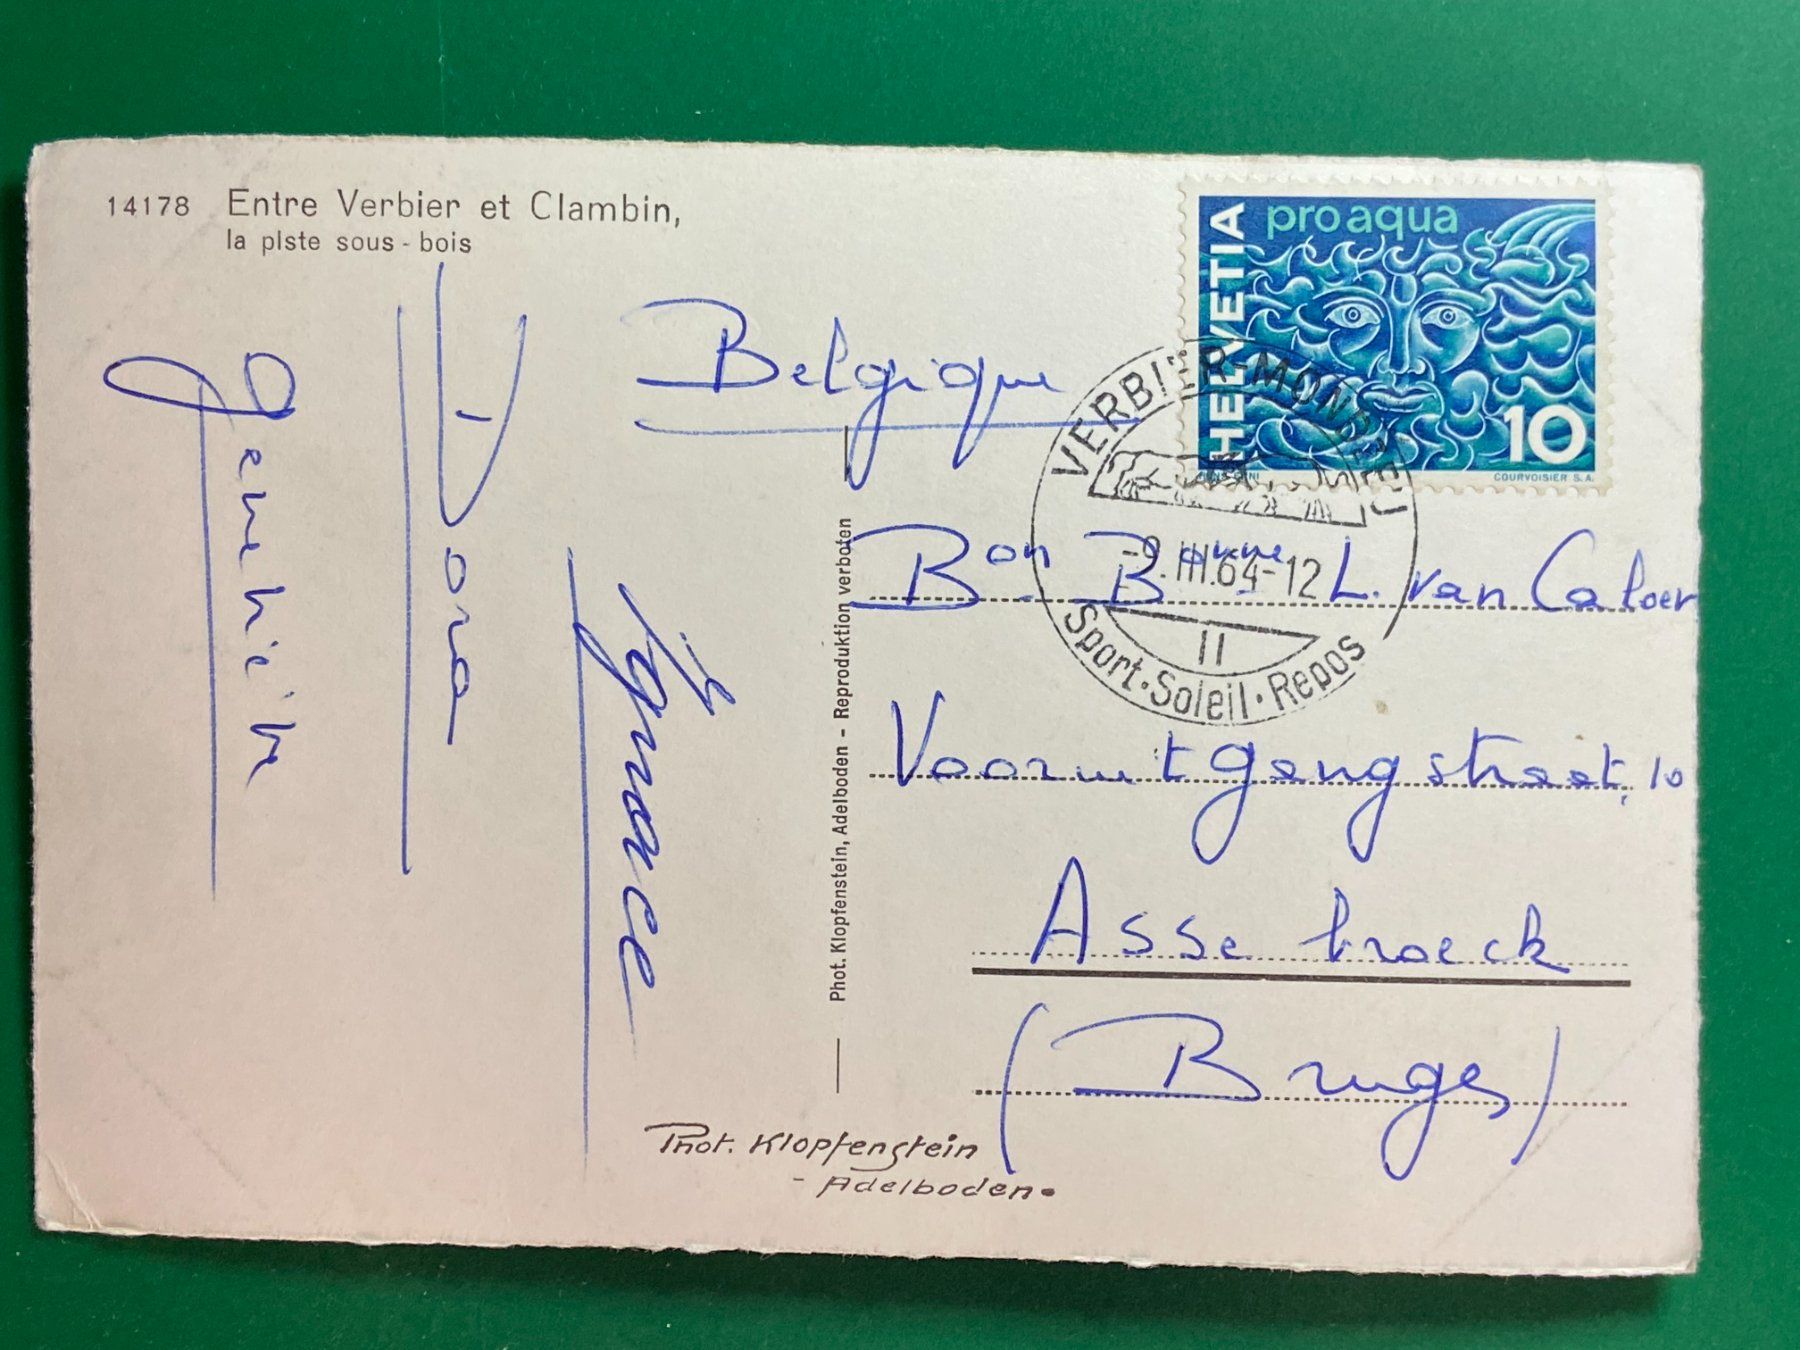 14178 Entre Verbier et Clambin,
la piste sous-bois
Geneviève
Dora
Ignace
Phot. Klopfenstein, Adelboden - Reproduktion verboten
Phot. Klopfenstein
- Adelboden.
HELVETIA
pro aqua
10
COURVOISIER S.A.
VERBIER-MON
-9.III.64-12
11
Sport·Soleil·Repos
Belgique
Bon Bonne L. van Caloen
Vooruitgangstraat, 10
Assebroeck
(Bruges)